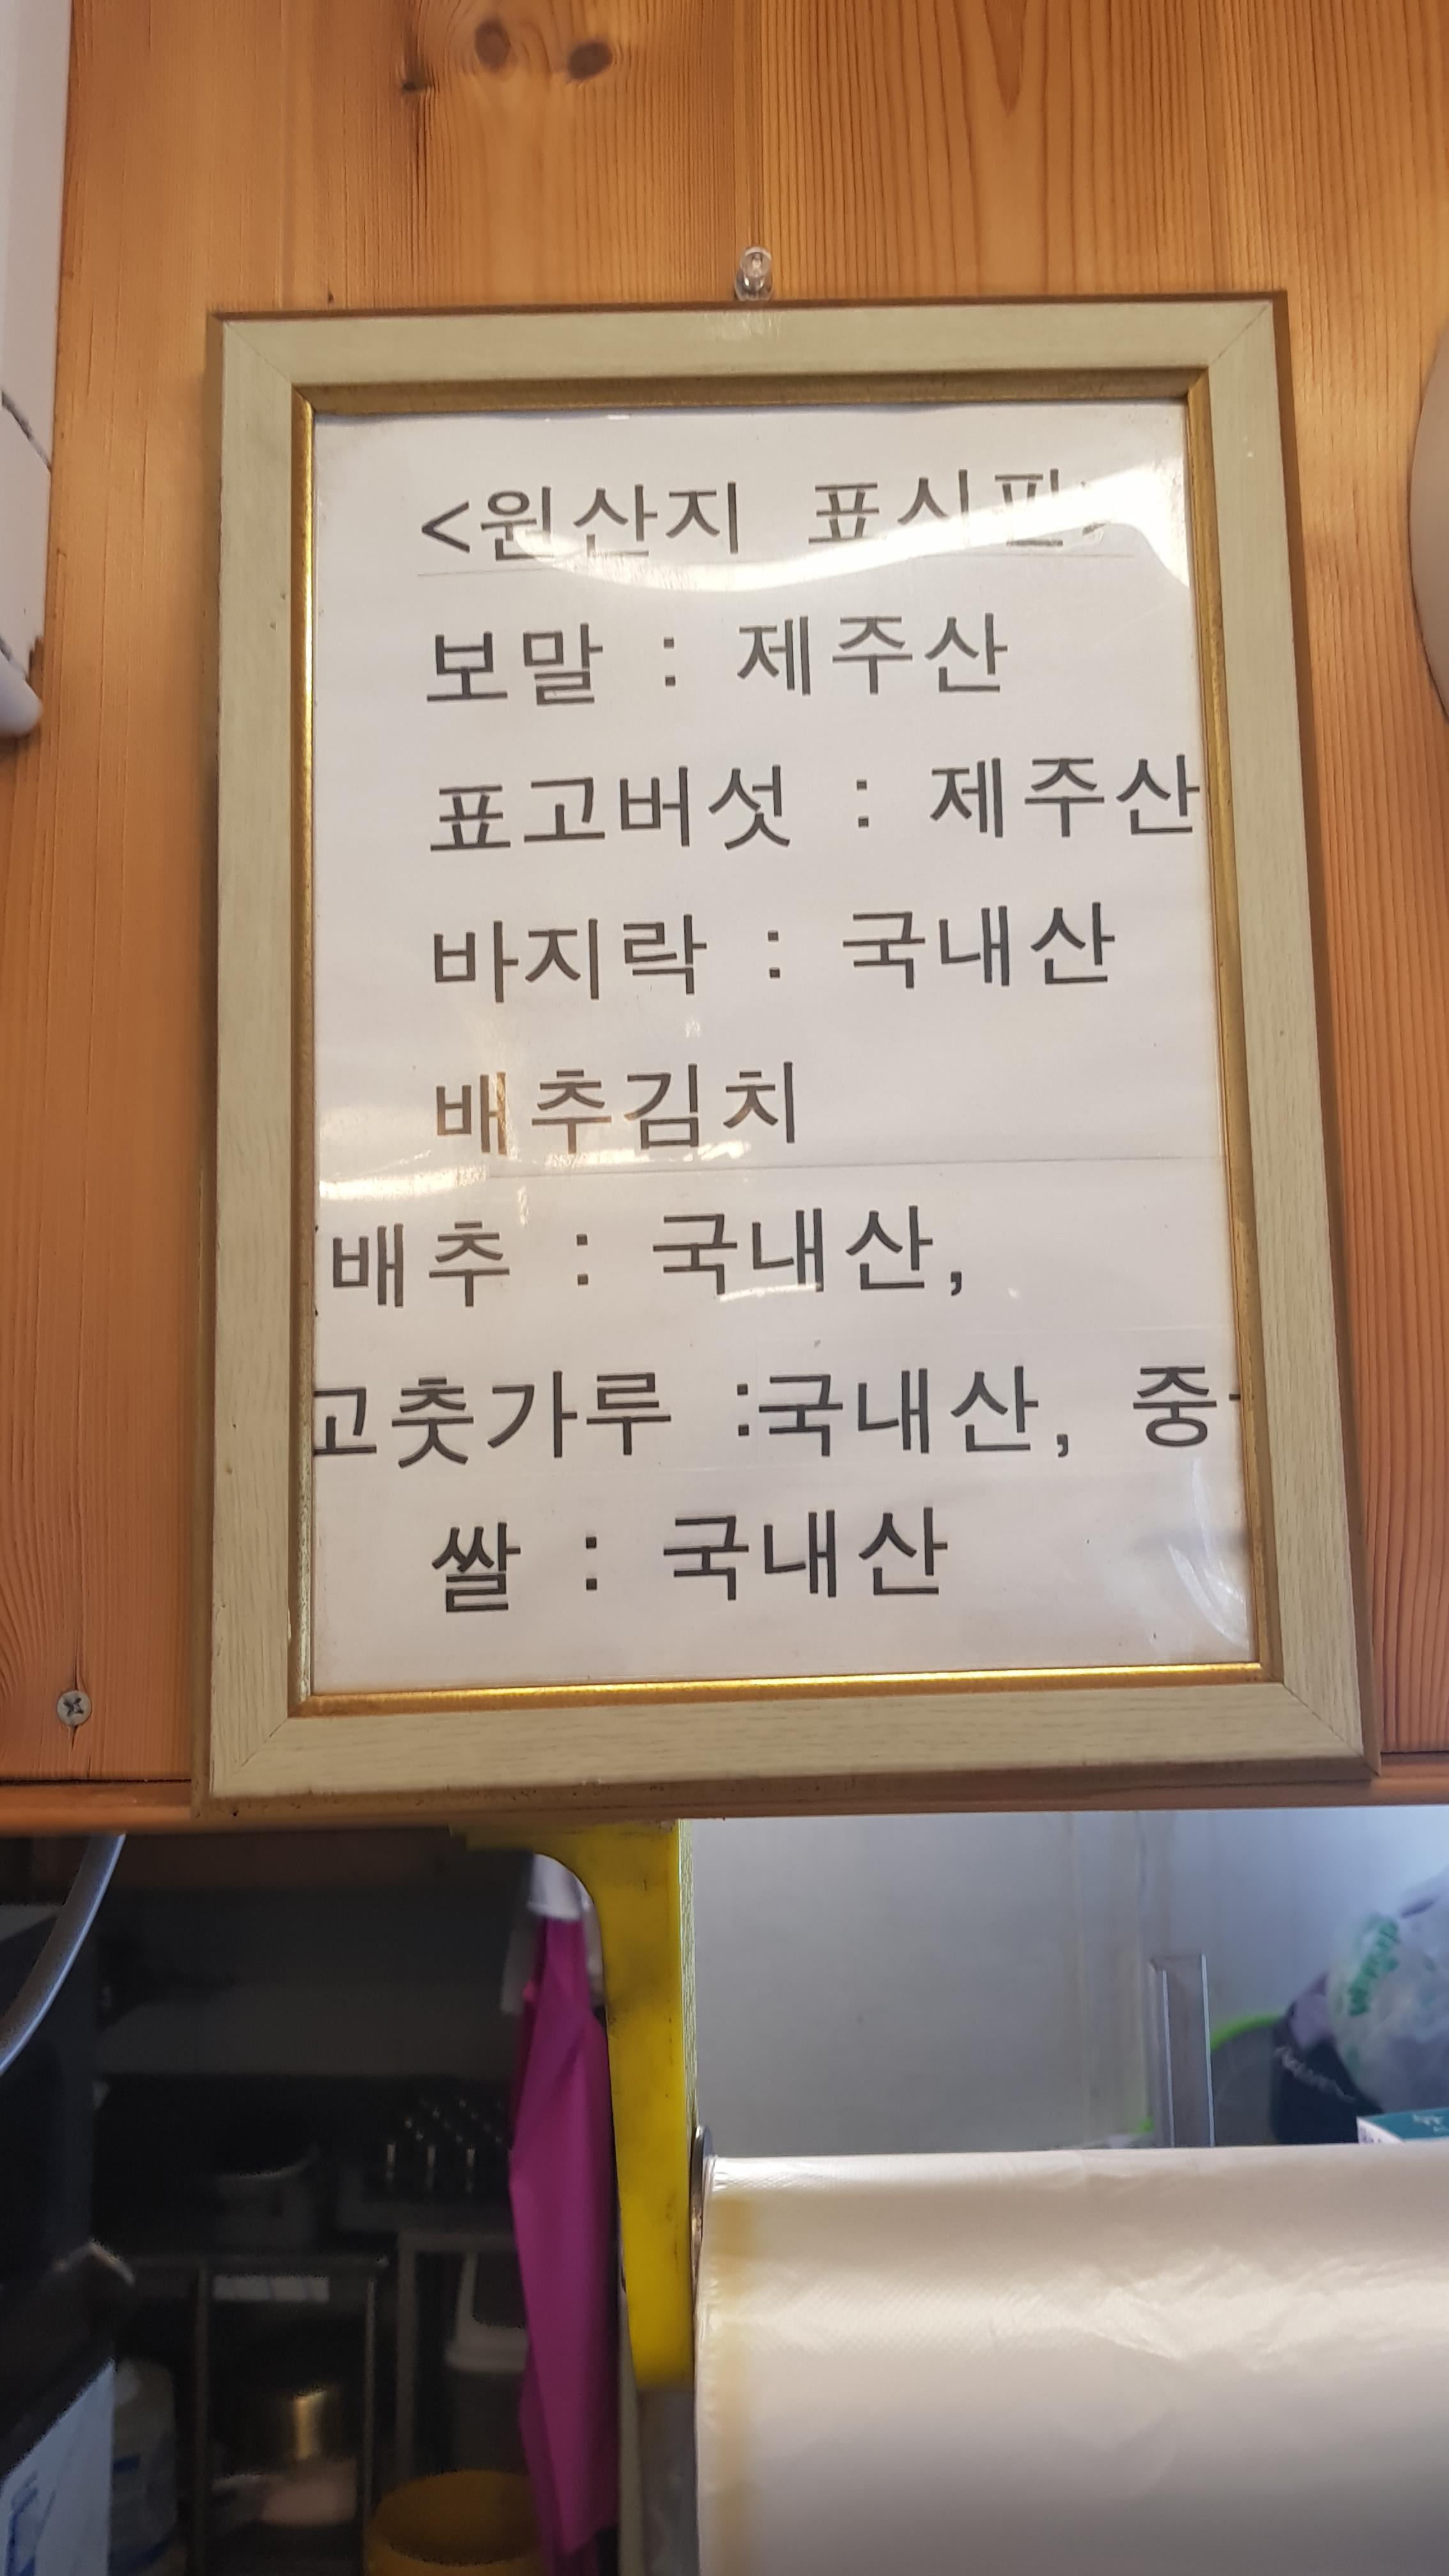 <원산지 표시판>
보말 : 제주산
표고버섯 : 제주산
바지락 : 국내산
배추김치
배추 : 국내산,
고춧가루 :국내산, 중
쌀 : 국내산